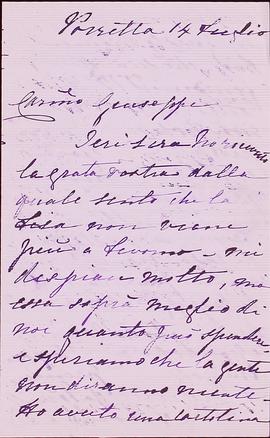 Porretta 14 Luglio
Carino Giuseppe
Ieri sera ho ricevuto
la grata vostra dalla
quale sento che la
Lisa non viene
più a Livorno - mi
dispiace molto, ma
essa saprà meglio di
noi quanto può spendere
e speriamo che la gente
non diranno niente -
Ho avuto una cartolina